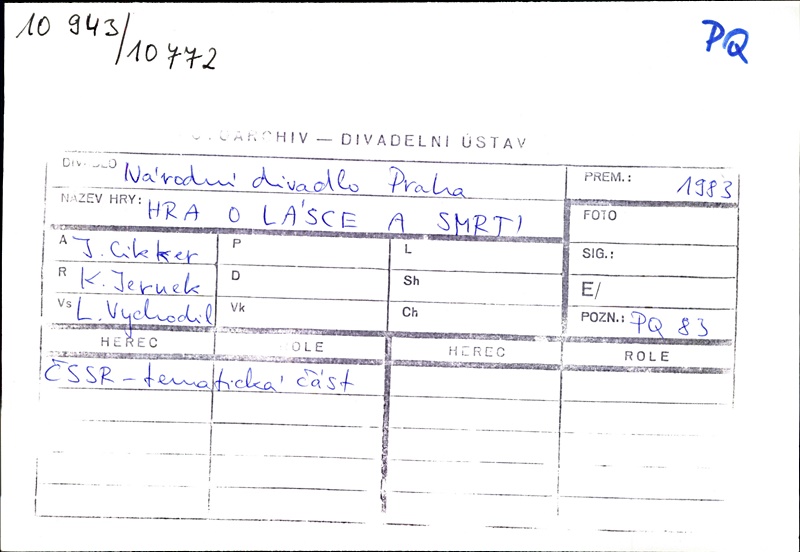 10 943/10 772
PQ
FOTOARCHIV — DIVADELNÍ ÚSTAV
DIVADLO Národní divadlo Praha PREM.: 1983
NÁZEV HRY: HRA O LÁSCE A SMRTI FOTO
A J. Cikker P L SIG.:
R K. Jernek D Sh E/
Vs L. Vychodil Vk Ch POZN.: PQ 83
HEREC ROLE HEREC ROLE
ČSSR - tematická část